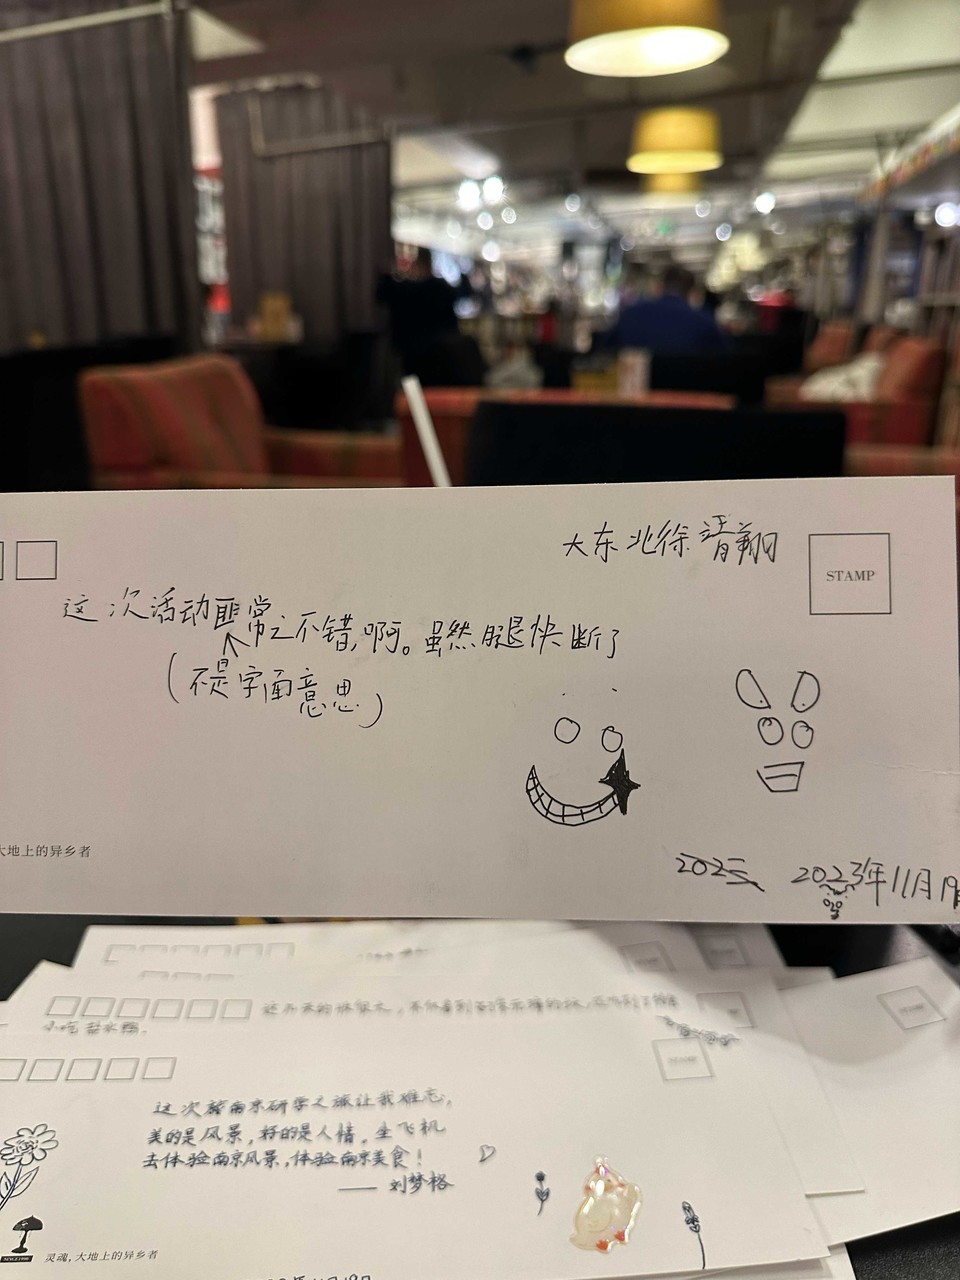 大东北徐靖翔
STAMP
这次活动匪常之不错,啊。虽然腿快断了
(不是字面意思)
大地上的异乡者
2023年11月19日
STAMP
小吃 盐水鸭。
STAMP
这次南京研学之旅让我难忘,
美的是风景,好的是人情。坐飞机
去体验南京风景,体验南京美食!
—— 刘梦格
灵魂,大地上的异乡者